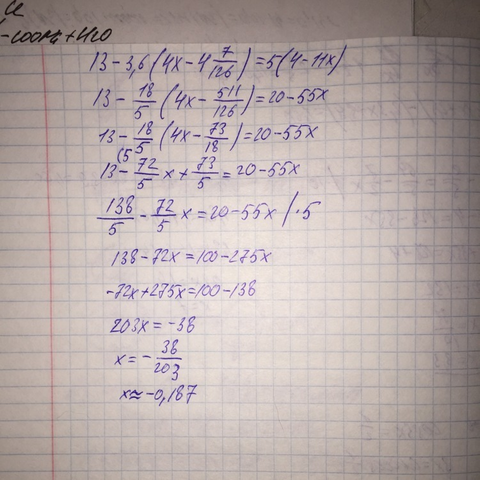 -COONa + H2O
13 - 3,6 (4x - 4 7/126) = 5(4 - 11x)
13 - 18/5 (4x - 511/126) = 20 - 55x
13 - 18/5 (4x - 73/18) = 20 - 55x
13 (5 - 72/5 x + 73/5 = 20 - 55x
138/5 - 72/5 x = 20 - 55x / ·5
138 - 72x = 100 - 275x
-72x + 275x = 100 - 138
203x = -38
x = - 38/203
x ≈ -0,187